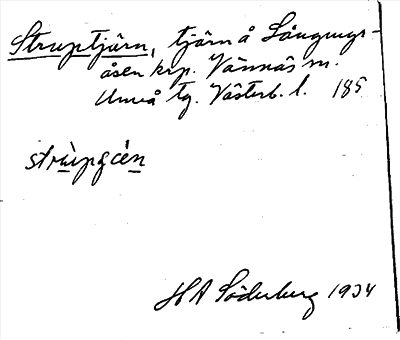 Struptjärn, tjärn å Långrugs-
åsen krp. Vännäs sn.
Umeå tg. Västerb. l. 185
strùpɕén
H A Söderberg 1934